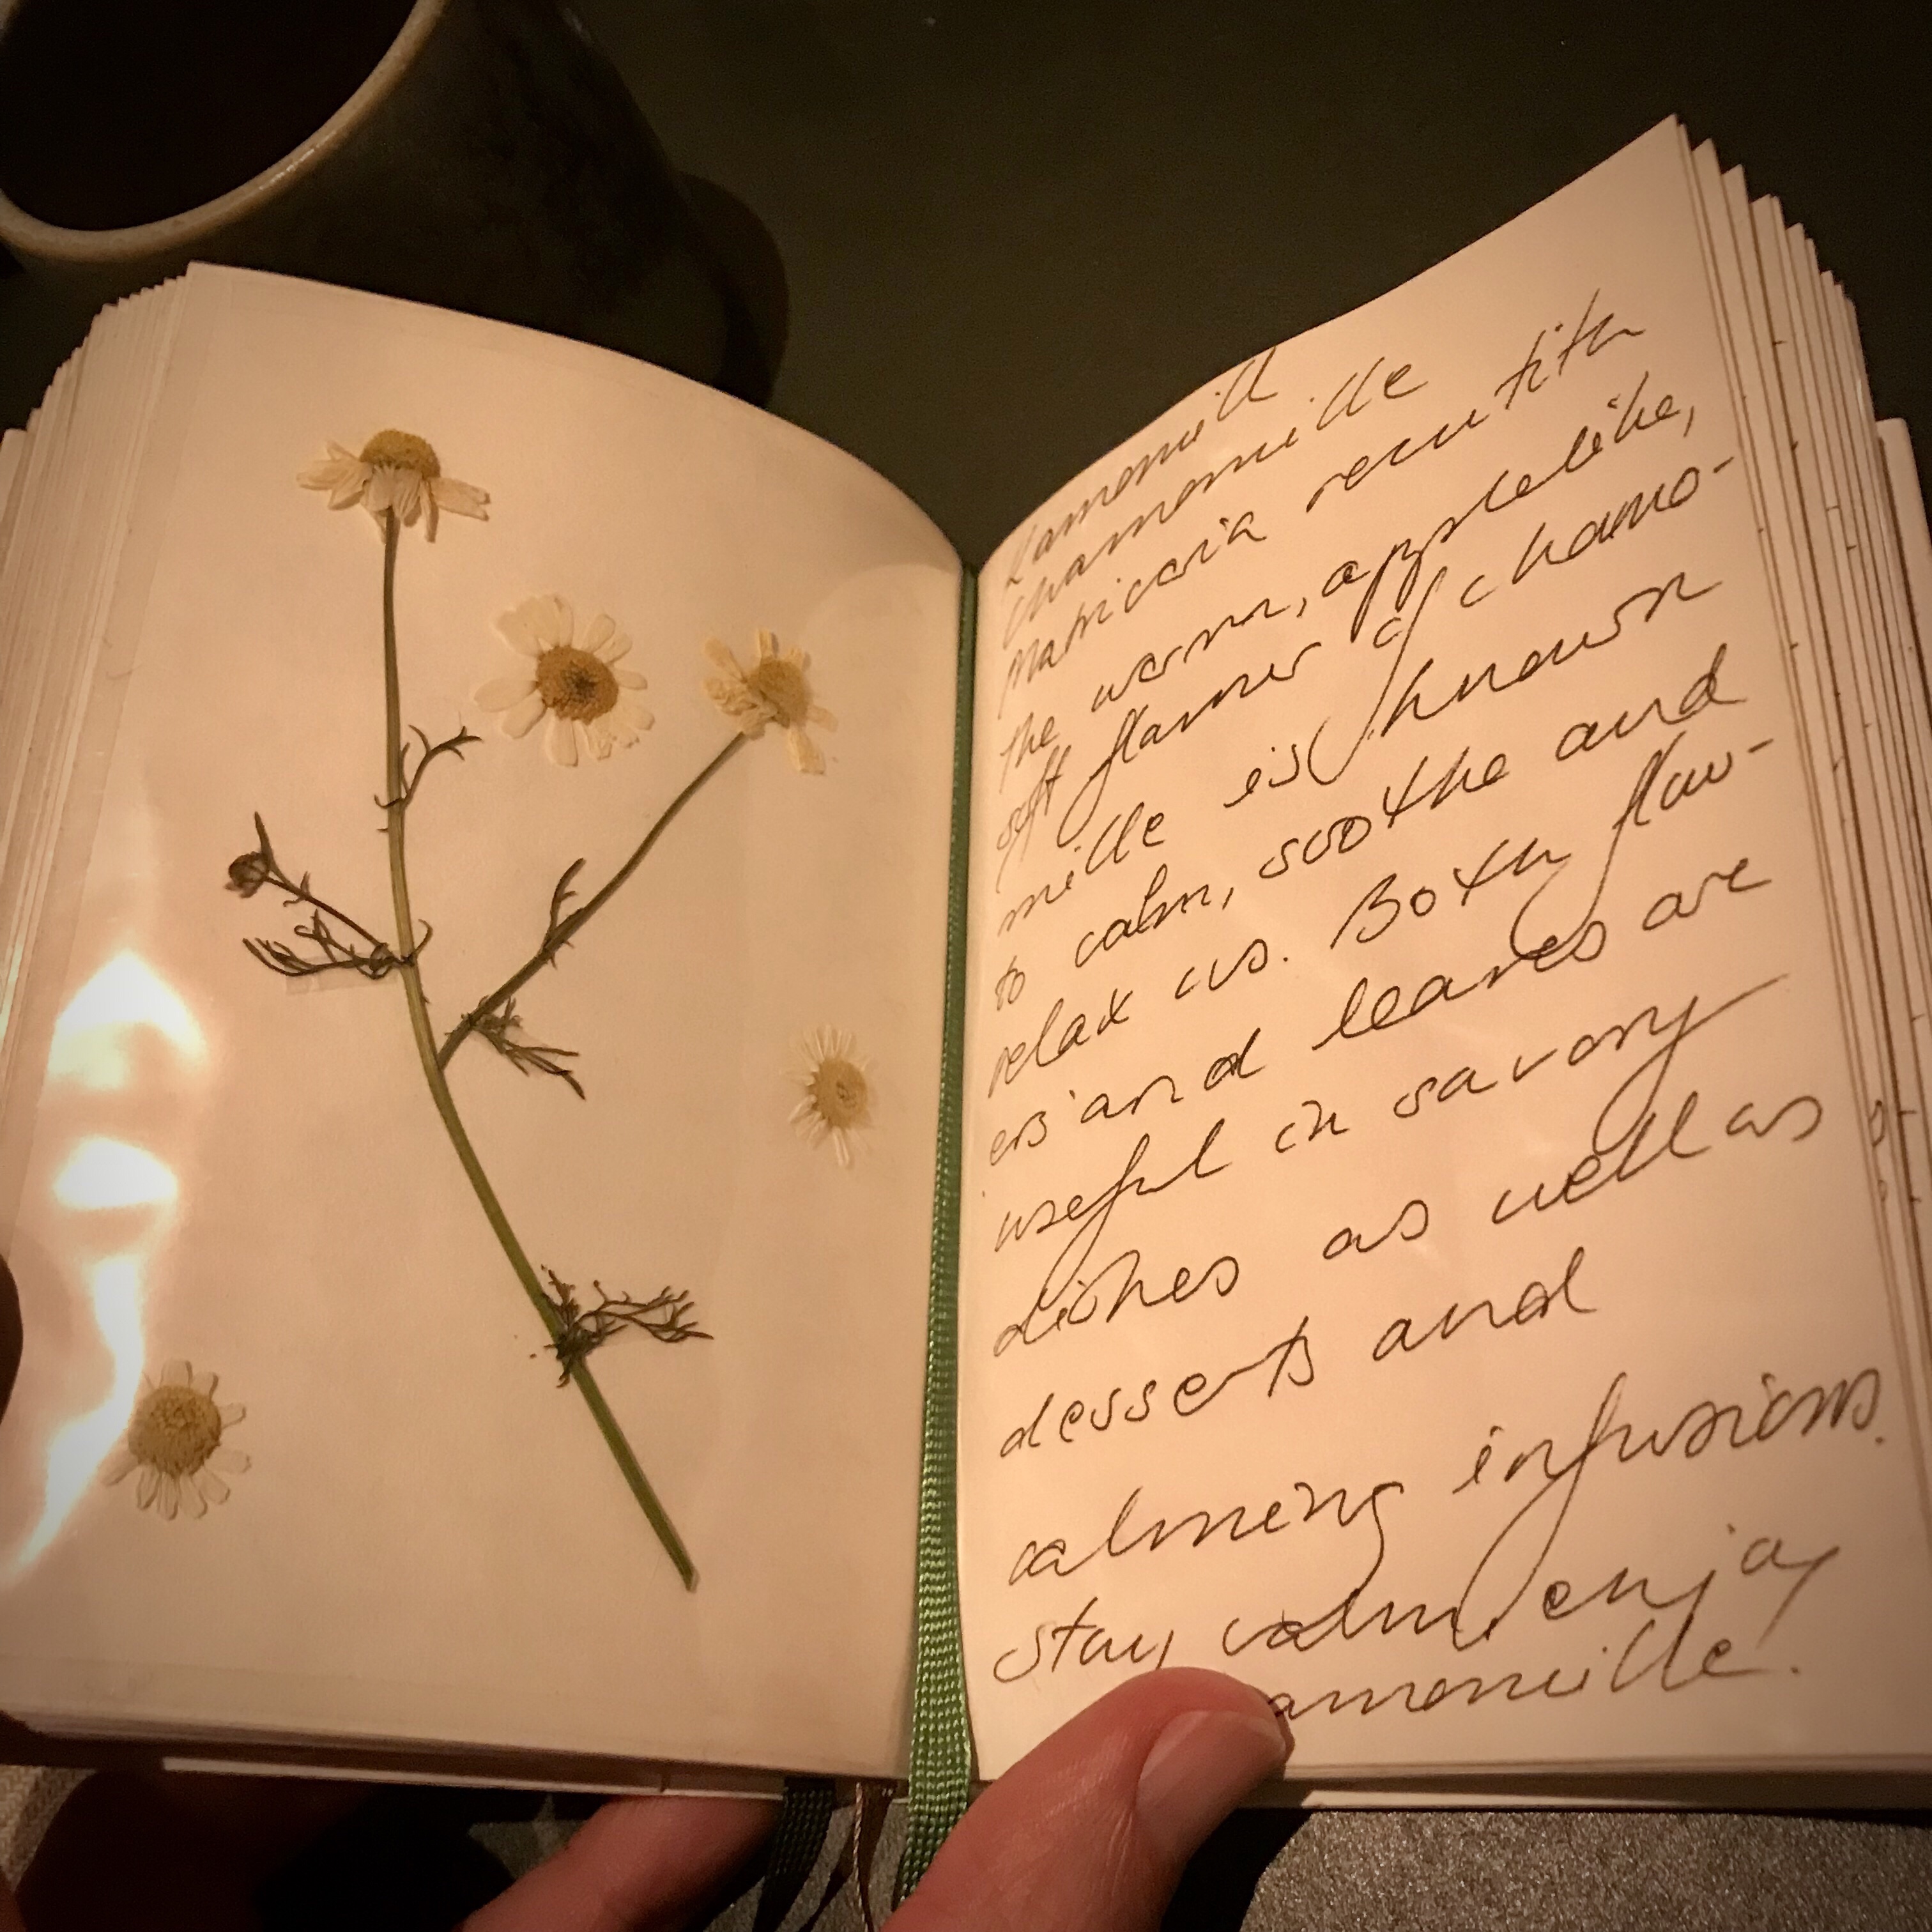 Kamomill
chamomille
Matricaria recutita
the warm, applelike,
soft flavor of chamo-
mille is known
to calm, soothe and
relax us. Both flow-
ers and leaves are
useful in savory
dishes as well as
desserts and
calming infusions.
Stay calm, enjoy
amomille.